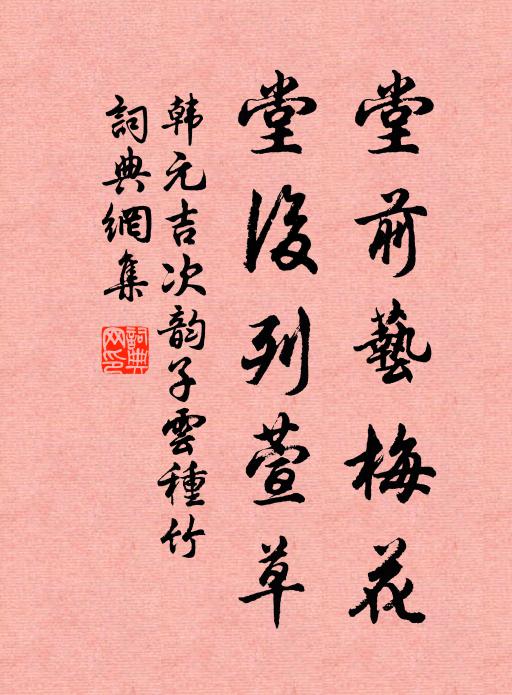 堂前藝梅花
堂後列萱草
韩元吉次韵子雲種竹
詞典網集
詞典网印